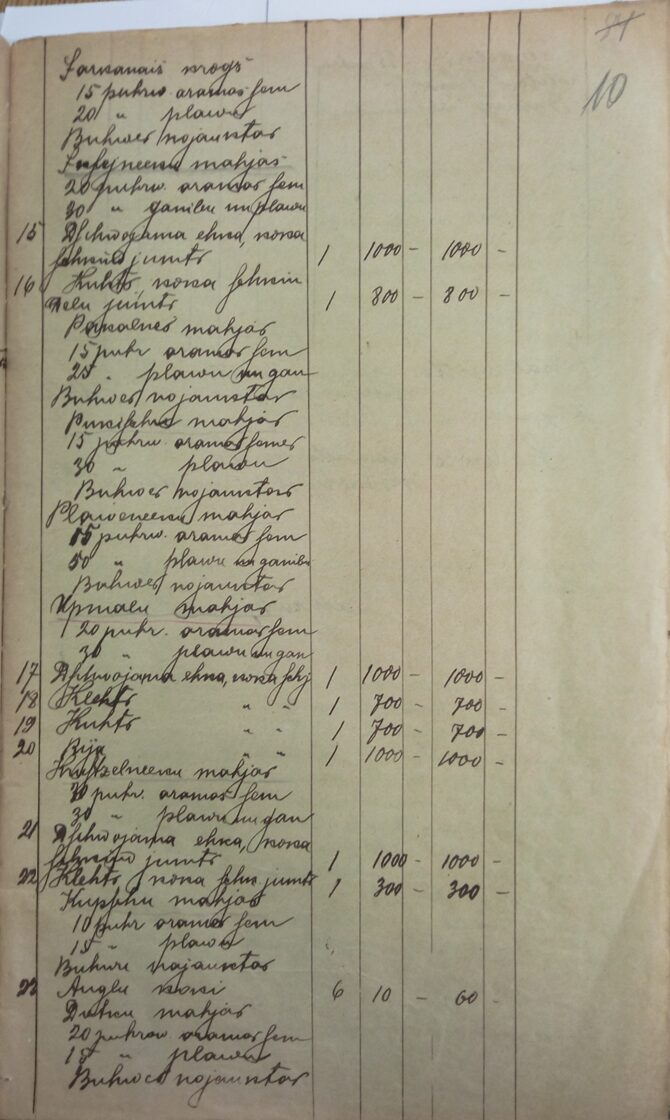 10
Sarkanais krogs
15 puhrw aramas sem
20 " plawu
Buhwes nojauktas
mahjas
20 puhrw. aramas sem
30 " ganibu un plawu
15 Dsihwojama ehka, koka
schkindu jumts 1 1000 – 1000 –
16 Kuhts, koka schkin
delu jumts 1 800 – 800 –
Pakalnes mahjas
15 puhr aramas sem
25 " plawu un gan
Buhwes nojauktas
mahjas
15 puhrw aramas semes
30 " plawu
Buhwes nojauktas
Plaweneeku mahjas
15 puhrw. aramas sem
50 " plawu un ganibu
Buhwes nojauktas
Upmalu mahjas
120 puhr. aramas sem
30 " plawu un gan
17 Dsihwojama ehka, koka schj 1 1000 – 1000 –
18 Klehts " " 1 700 – 700 –
19 Kuhts " " 1 700 – 700 –
20 Rija " " 1 1000 – 1000 –
mahjas
30 puhr. aramas sem
30 " plawu un gan
21 Dsihwojama ehka, koka
schkindu jumts 1 1000 – 1000 –
22 Klehts, koka schk jumts 1 300 – 300 –
mahjas
10 puhr aramas sem
15 " plawu
Buhwe nojauktas
22 Auglu koki 6 10 – 60 –
mahjas
20 puhrw aramas sem
15 " plawu
Buhwes nojauktas